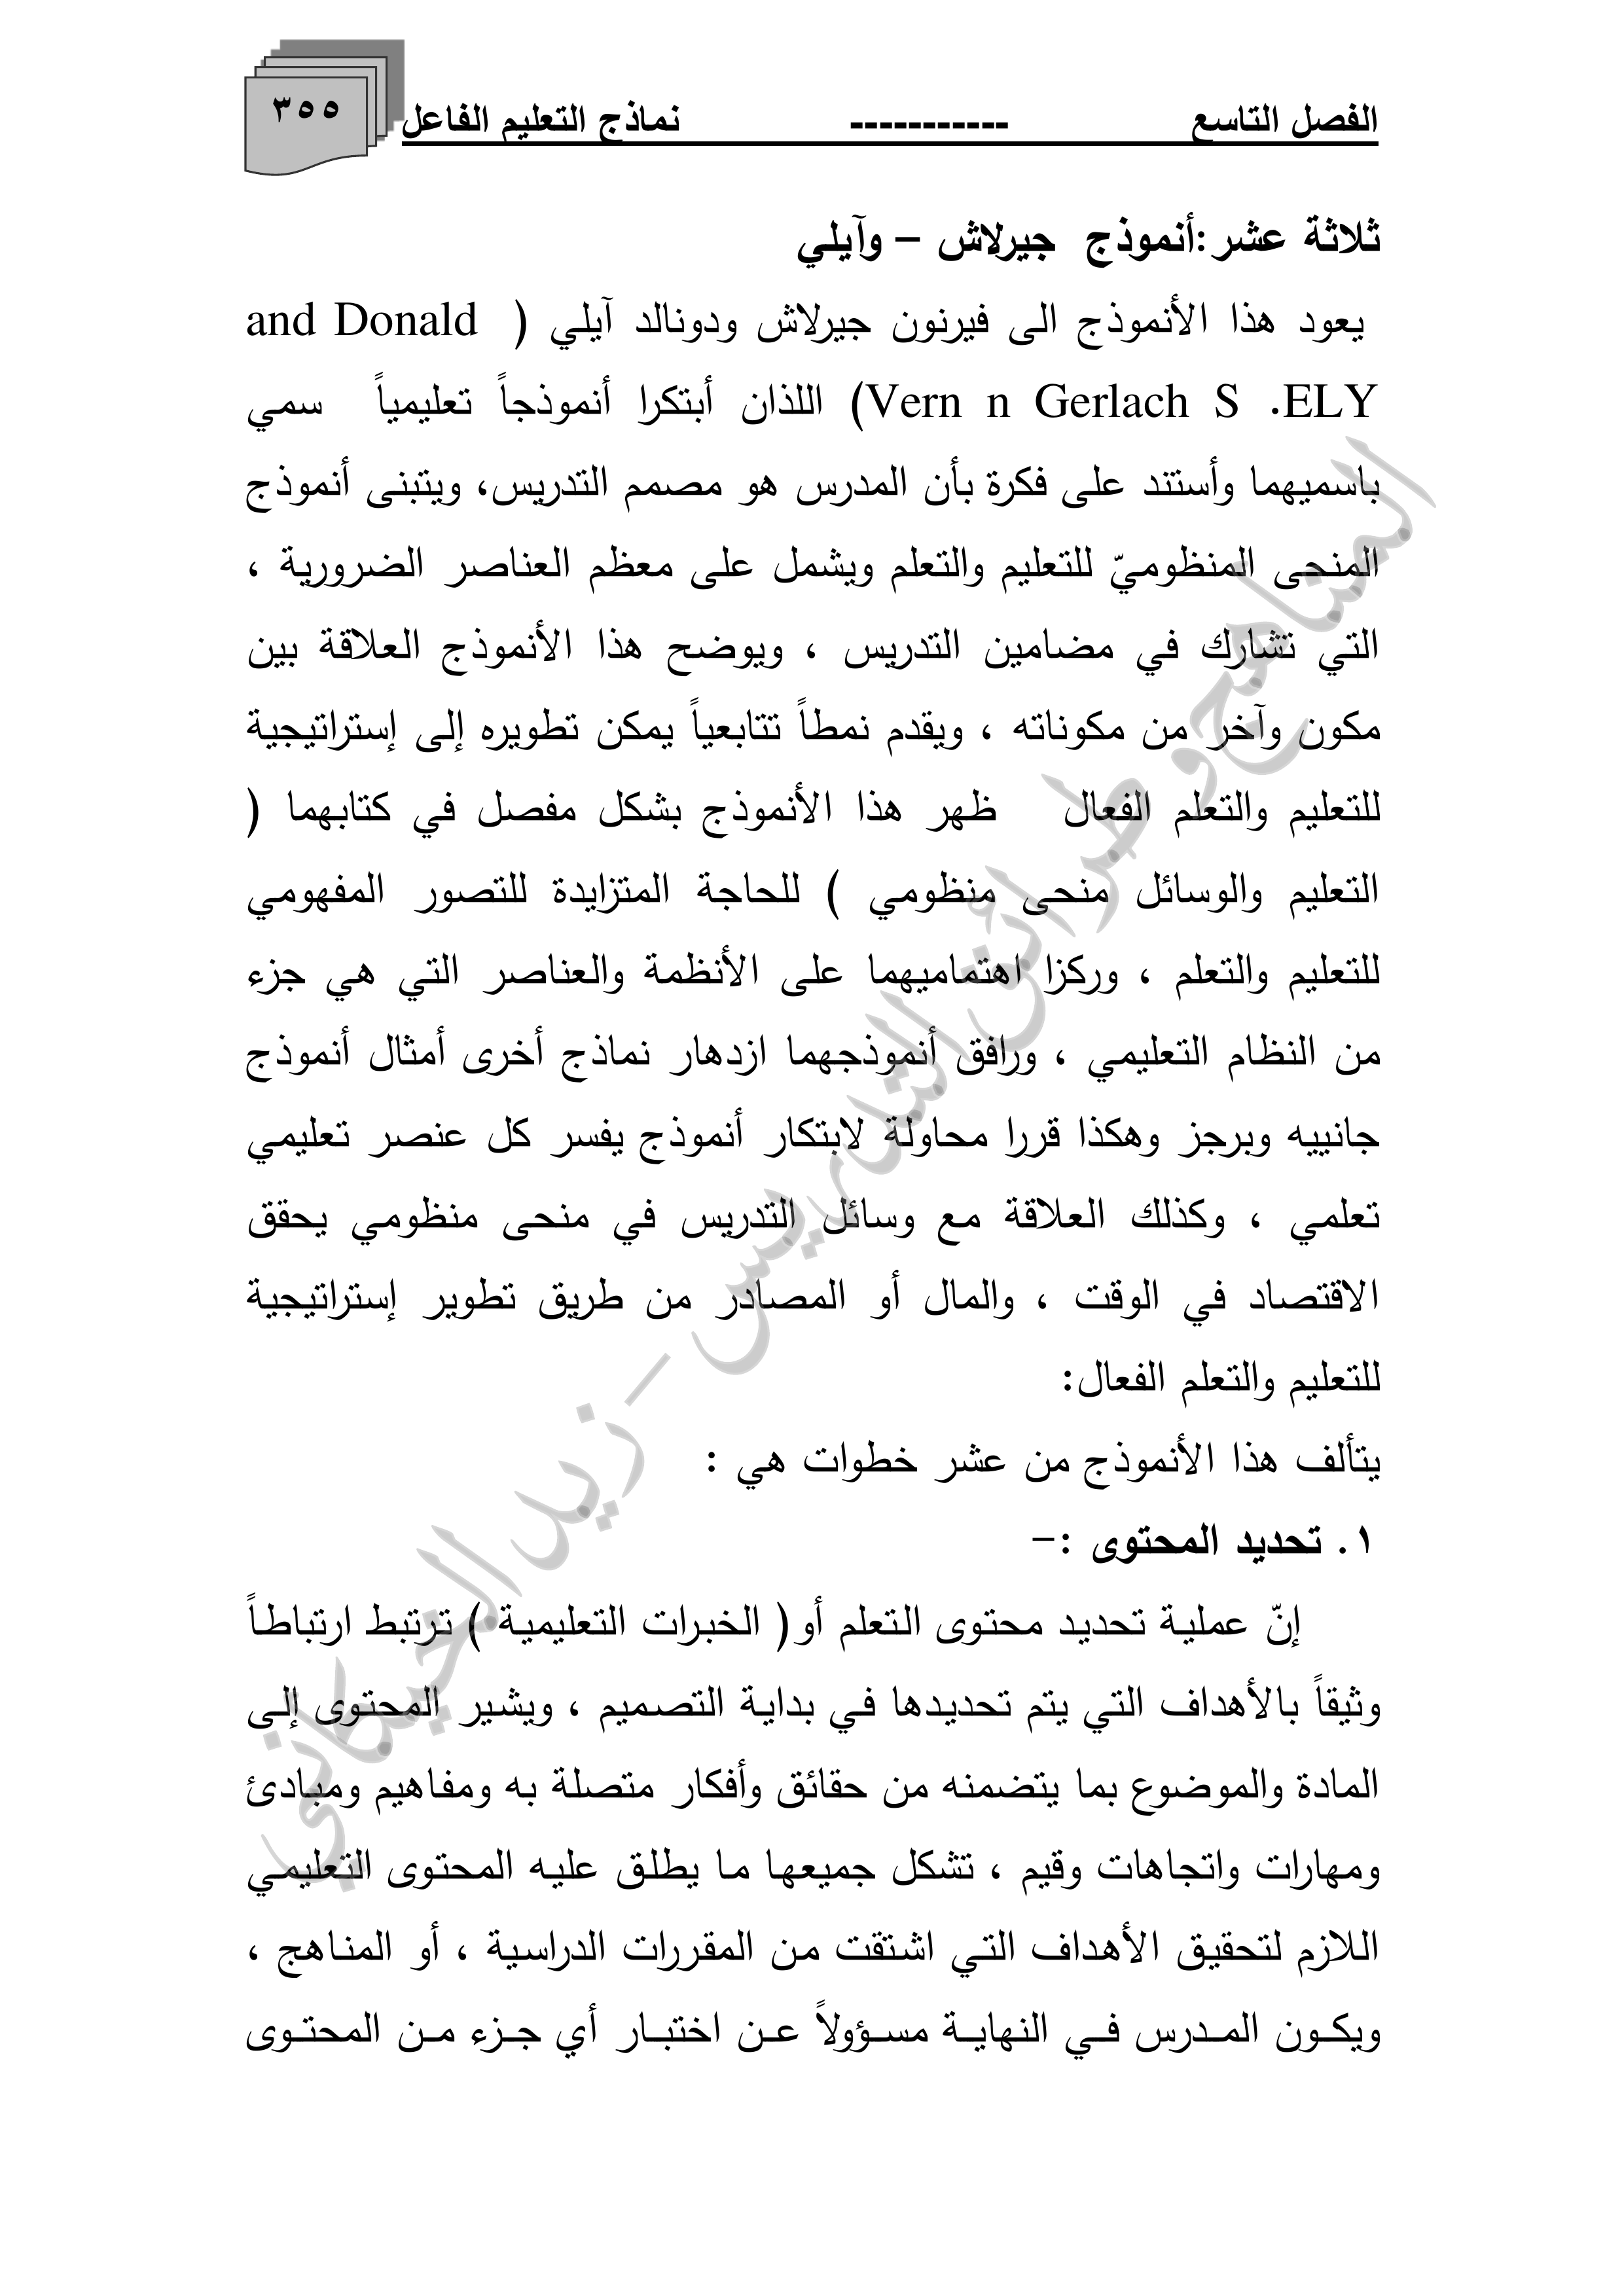 الفصل التاسع ----------- نماذج التعليم الفاعل
٣٥٥
ثلاثة عشر:أنموذج جيرلاش – وآيلي
يعود هذا الأنموذج الى فيرنون جيرلاش ودونالد آيلي ( and Donald
Vern n Gerlach S .ELY) اللذان أبتكرا أنموذجاً تعليمياً سمي
باسميهما وأستند على فكرة بأن المدرس هو مصمم التدريس، ويتبنى أنموذج
المنحى المنظوميّ للتعليم والتعلم ويشمل على معظم العناصر الضرورية ،
التي تشارك في مضامين التدريس ، ويوضح هذا الأنموذج العلاقة بين
مكون وآخر من مكوناته ، ويقدم نمطاً تتابعياً يمكن تطويره إلى إستراتيجية
للتعليم والتعلم الفعال ظهر هذا الأنموذج بشكل مفصل في كتابهما (
التعليم والوسائل منحى منظومي ) للحاجة المتزايدة للتصور المفهومي
للتعليم والتعلم ، وركزا اهتماميهما على الأنظمة والعناصر التي هي جزء
من النظام التعليمي ، ورافق أنموذجهما ازدهار نماذج أخرى أمثال أنموذج
جانييه وبرجز وهكذا قررا محاولة لابتكار أنموذج يفسر كل عنصر تعليمي
تعلمي ، وكذلك العلاقة مع وسائل التدريس في منحى منظومي يحقق
الاقتصاد في الوقت ، والمال أو المصادر من طريق تطوير إستراتيجية
للتعليم والتعلم الفعال:
يتألف هذا الأنموذج من عشر خطوات هي :
١. تحديد المحتوى :-
إنّ عملية تحديد محتوى التعلم أو( الخبرات التعليمية ) ترتبط ارتباطاً
وثيقاً بالأهداف التي يتم تحديدها في بداية التصميم ، ويشير المحتوى إلى
المادة والموضوع بما يتضمنه من حقائق وأفكار متصلة به ومفاهيم ومبادئ
ومهارات واتجاهات وقيم ، تشكل جميعها ما يطلق عليه المحتوى التعليمي
اللازم لتحقيق الأهداف التي اشتقت من المقررات الدراسية ، أو المناهج ،
ويكون المدرس في النهاية مسؤولاً عن اختبار أي جزء من المحتوى
المناهج وطرائق التدريس - زيد الخيكاني